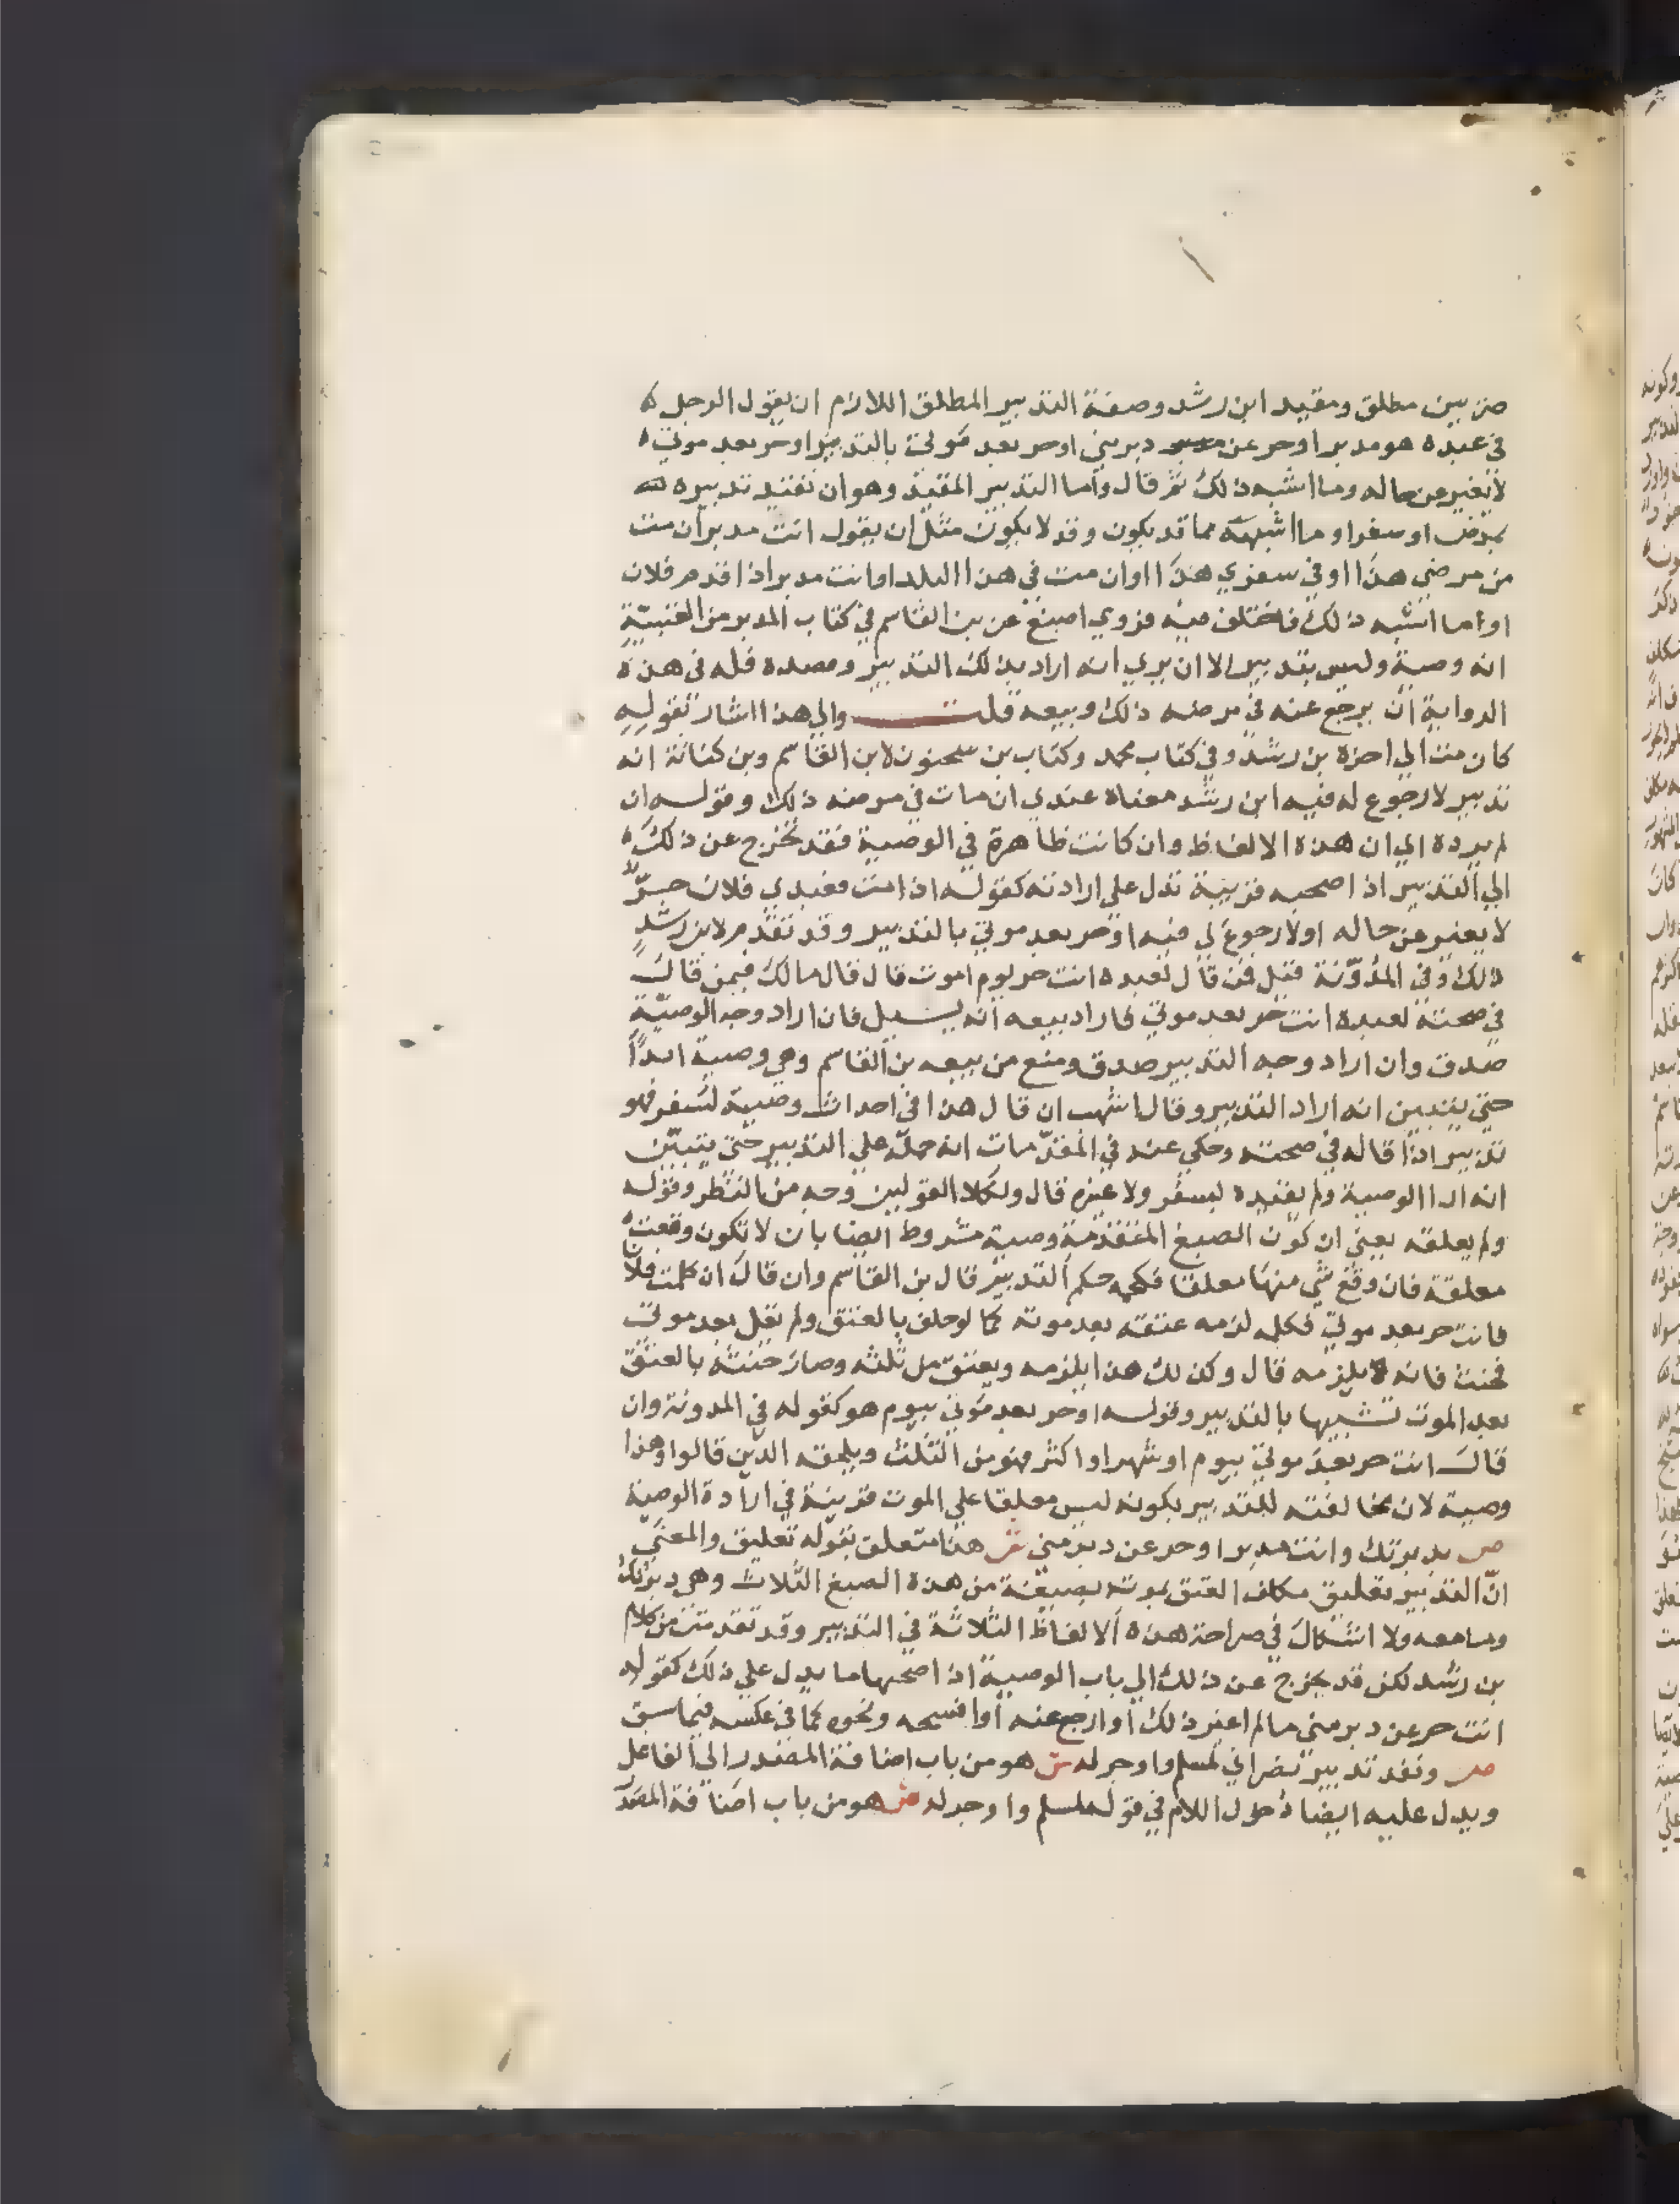 ضربين مطلق ومقيد ابن رشد وصفة التدبير المطلق اللازم ان يقول الرجل
في عبده هو مدبر او حر عن دبر مني او حر بعد موتي بالتدبير او حر بعد موتي
لا يغير عن حاله وما اشبه ذلك ثم قال واما التدبير المقيد وهو ان يقيد تدبيره
بمرض او سفر او ما اشبهه مما قد يكون وقد لا يكون مثل ان يقول انت مدبر ان مت
من مرضي هذا او في سفري هذا او ان مت في هذا البلد او انت مدبر اذا قدم فلان
او ما اشبه ذلك فاختلف فيه فروي اصبغ عن بن القاسم في كتاب المدبر من العتبية
انه وصية وليس بتدبير الا ان يري انه اراد بذلك التدبير وقصده فله في هذه
الرواية ان يرجع عنه في مرضه ذلك وبيعه قلت والي هذا اشار بقوله
كان مت الي اخره بن رشد وفي كتاب محمد وكتاب بن سحنون لابن القاسم وبن كنانة انه
تدبير لا رجوع له فيه ابن رشد معناه عندي ان مات في مرضه ذلك وقوله ان
لم يرده الي ان هذه الالفاظ وان كانت ظاهرة في الوصية فقد تخرج عن ذلك
الي التدبير اذا صحبه قرينة تدل علي ارادته كقوله اذا مت فعبدي فلان حر
لا يغير عن حاله او لا رجوع لي فيه او حر بعد موتي بالتدبير وقد تقدم لابن رشد
ذلك وفي المدونة قيل فمن قال لعبده انت حر يوم اموت قال قال مالك فيمن قال
في صحته لعبده انت حر بعد موتي فاراد بيعه انه يسيل فان اراد وجه الوصية
صدق وان اراد وجه التدبير صدق ومنع من بيعه بن القاسم وهي وصية ابدا
حتي يتبين انه اراد التدبير وقال اشهب ان قال هذا في احداث وصية لسفر فهو
تدبير اذا قاله في صحته وحكي عنه في المقدمات انه حمله علي التدبير حتي يتبين
انه ارا الوصية ولم يقيده بسفر ولا غيره قال ولكلا القولين وجه من النظر وقوله
ولم يعلقه يعني ان كون الصيغ المتقدمة وصية مشروط ايضا بان لا تكون وقعت
معلقة فان وقع شي منها معلقا فحكمه حكم التدبير قال بن القاسم وان قال ان كلمت فلانا
فانت حر بعد موتي فكلمه لزمه عتقه بعد موته كما لو حلف بالعتق ولم يقل بعد موتي
فحنث فانه يلزمه قال وكذلك هذا يلزمه ويعتق من ثلثه وصار حنثه بالعتق
بعد الموت تشبيها بالتدبير وقوله او حر بعد موتي بيوم هو كقوله في المدونة وان
قال انت حر بعد موتي بيوم او شهر او اكثر فهو من الثلث ويلحقه الدين قالوا وهذا
وصية لان مخالفته للتدبير بكونه ليس معلقا علي الموت قرينة في ارادة الوصية
ص بدبرتك وانت مدبر او حر عن دبر مني ش هذا متعلق بقوله تعليق والمعني
ان التدبير تعليق مكلف العتق بموته بصيغة من هذه الصيغ الثلاث وهي دبرتك
وما معه ولا اشكال في صراحة هذه الالفاظ الثلاثة في التدبير وقد تقدمت من كلام
بن رشد لكن قد يخرج عن ذلك الي باب الوصية اذا صحبها ما يدل علي ذلك كقوله
انت حر عن دبر مني ما لم اغير ذلك او ارجع عنه او افسخه ونحوه كما في عكسه فيما سبق
ص ونفذ تدبير نصراني لمسلم واوجر له ش هو من باب اضافة المصدر الي الفاعل
ويدل عليه ايضا دخول اللام في قوله لمسلم وا وجر له ش هو من باب اضافة المصدر